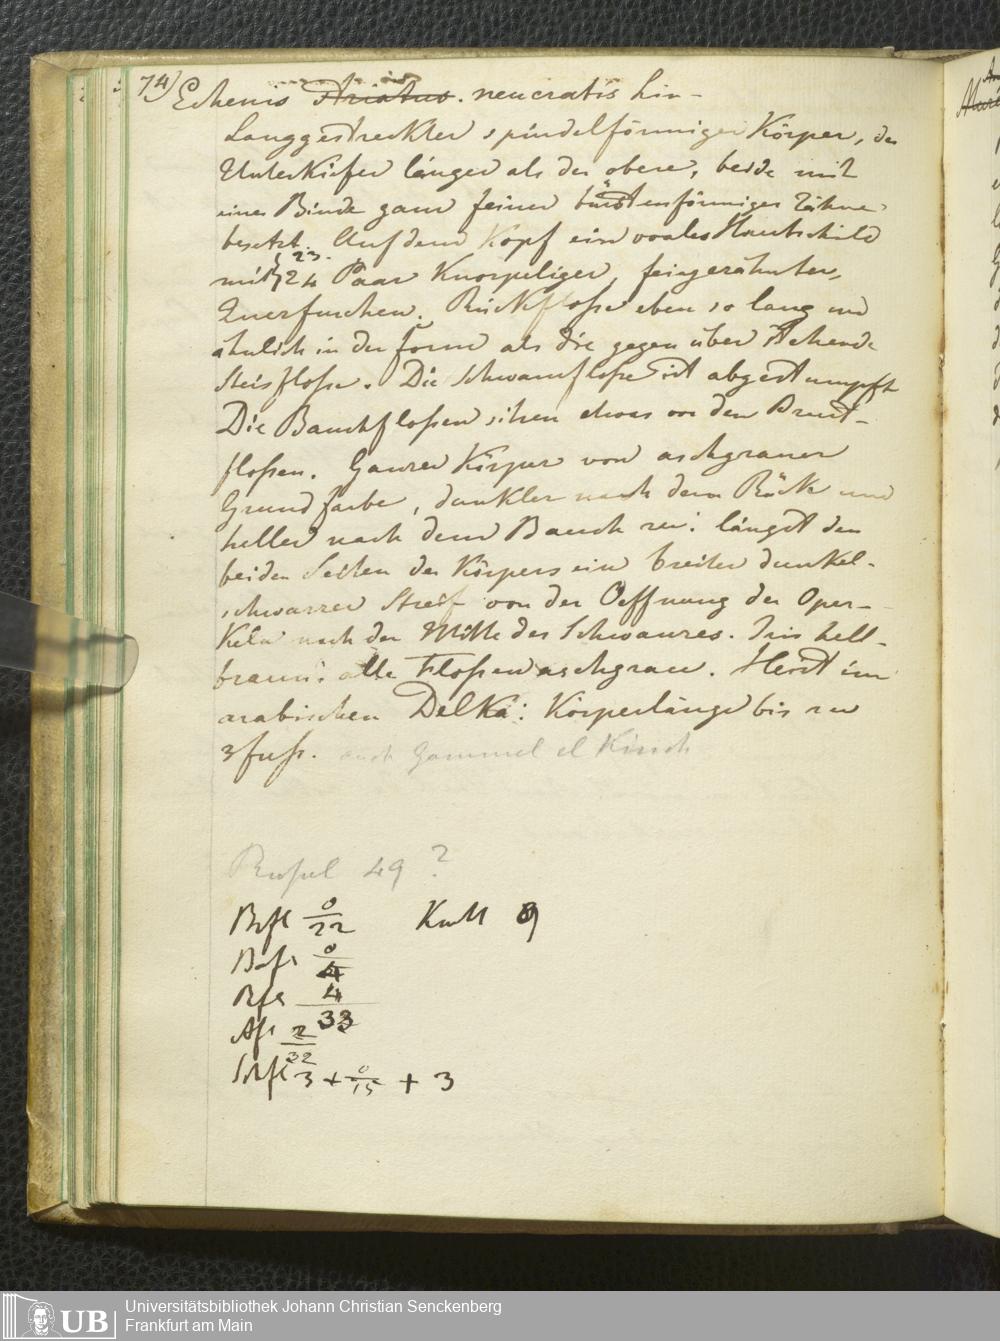 74) Echenis neucratis Lin-
Langgestreckter spindelförmiger Körper, der
Unterkiefer länger als der obere, beide mit
einer Binde ganz feiner bürstenförmiger Zähne
besetzt. Auf dem Kopf ein ovales Hautschild
mit 23. 24 Paar Knorpeliger, feingezähnter,
Querfurchen. Rückfloße eben so lang und
ähnlich in der Form als die gegen über stehende
Steisfloße. Die Schwanzfloße ist abgestumpft
Die Bauchfloßen sitzen etwas vor den Brust-
floßen. Ganzer Körper von aschgrauer
Grundfarbe, dunkler nach dem Rück und
heller nach dem Bauch zu: längst den
beiden Seiten des Körpers ein breiter dunkel-
schwarzer Streif von der Oeffnung der Oper-
Keln nach der Mitte des Schwanzes. Iris hell-
braun: alle Floßen aschgrau. Heist im
arabischen DelKa: Körperlänge bis zu
3 fuß. auch Gammel el Kirsch
Rußel 49?
Brfl 0/22 Knll 9
Bafl 0/4
Rfl 4/33
Afl 2/32
Schfl 3 + 0/15 + 3
Universitätsbibliothek Johann Christian Senckenberg
Frankfurt am Main
UB